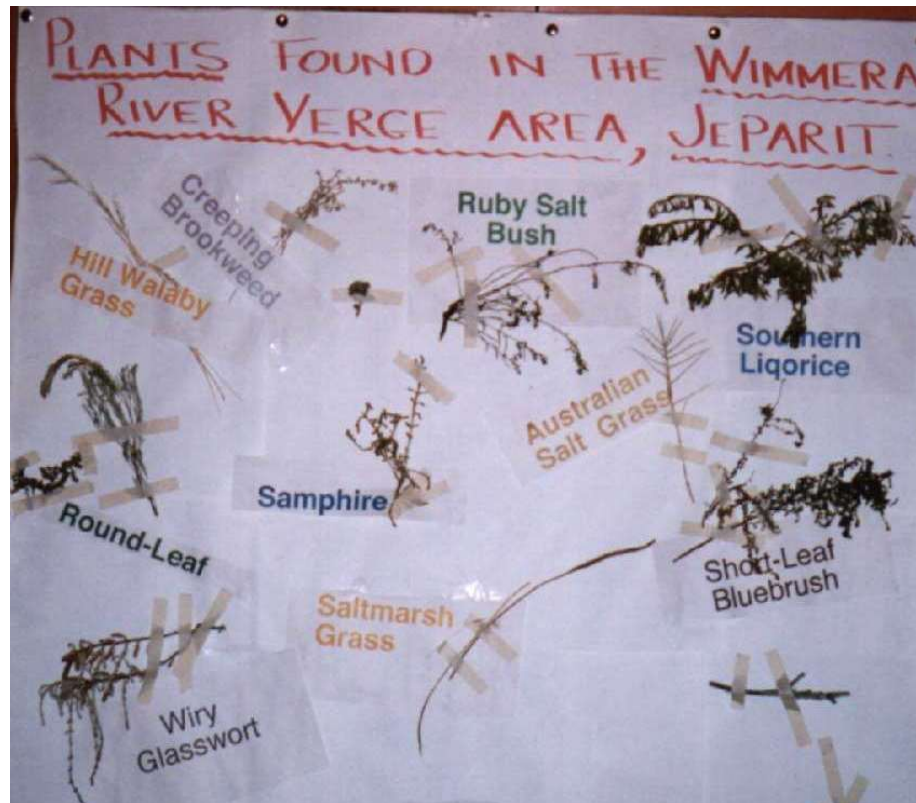 PLANTS FOUND IN THE WIMMERA
RIVER VERGE AREA, JEPARIT
Creeping
Brookweed
Ruby Salt
Bush
Hill Walaby
Grass
Southern
Liqorice
Australian
Salt Grass
Samphire
Round-Leaf
Short-Leaf
Bluebrush
Saltmarsh
Grass
Wiry
Glasswort